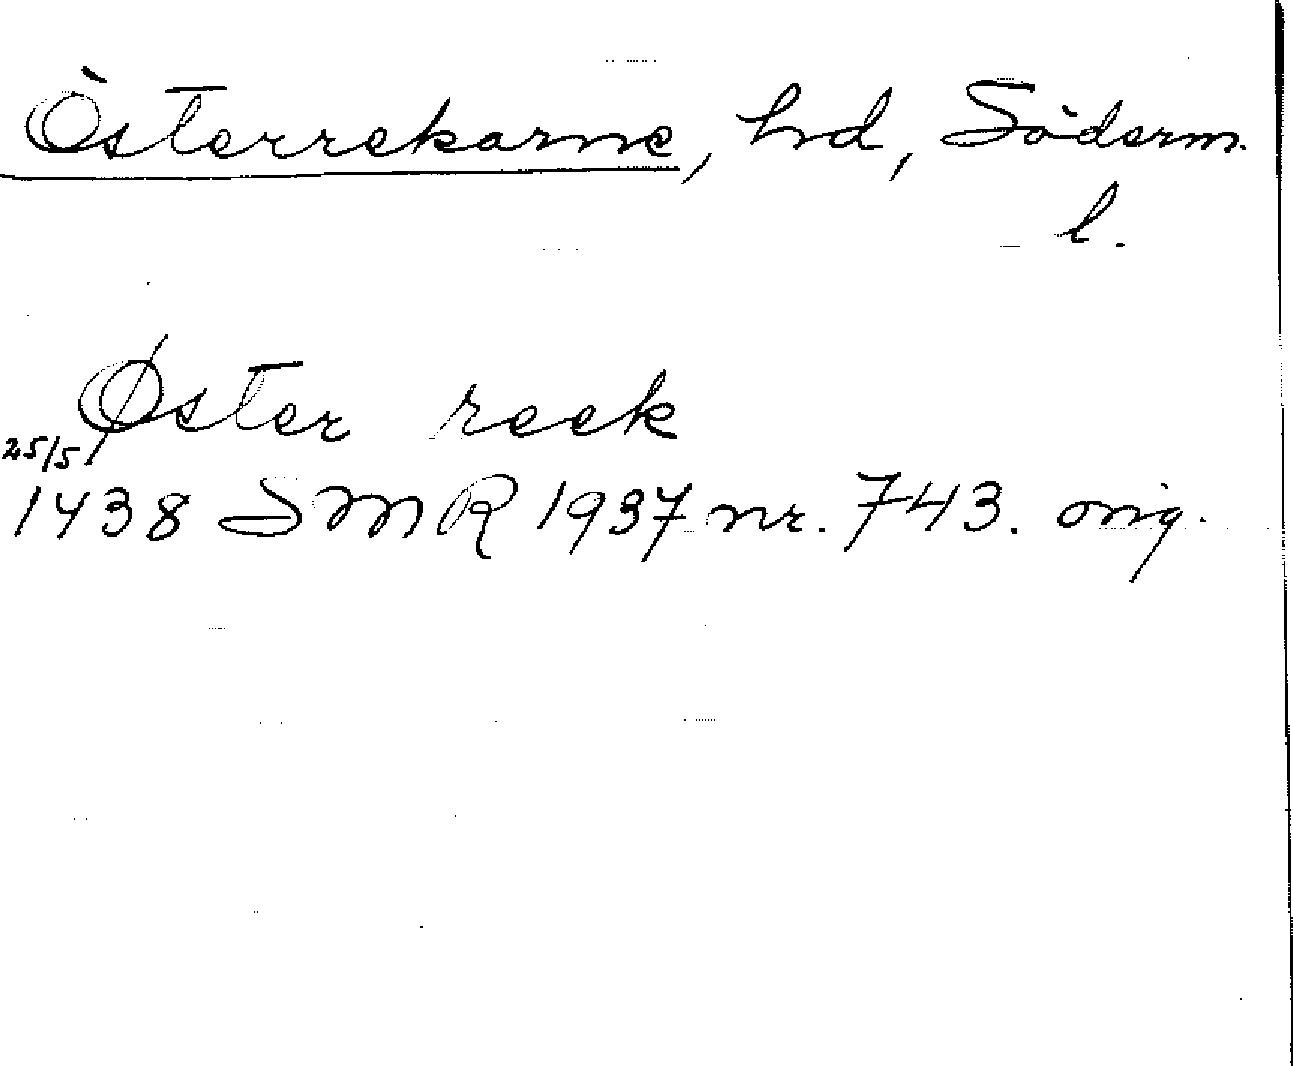 Österrekarne, hd, Söderm.
l.
Øster reek
25/5
1438 SMR 1937 nr. 743. orig.